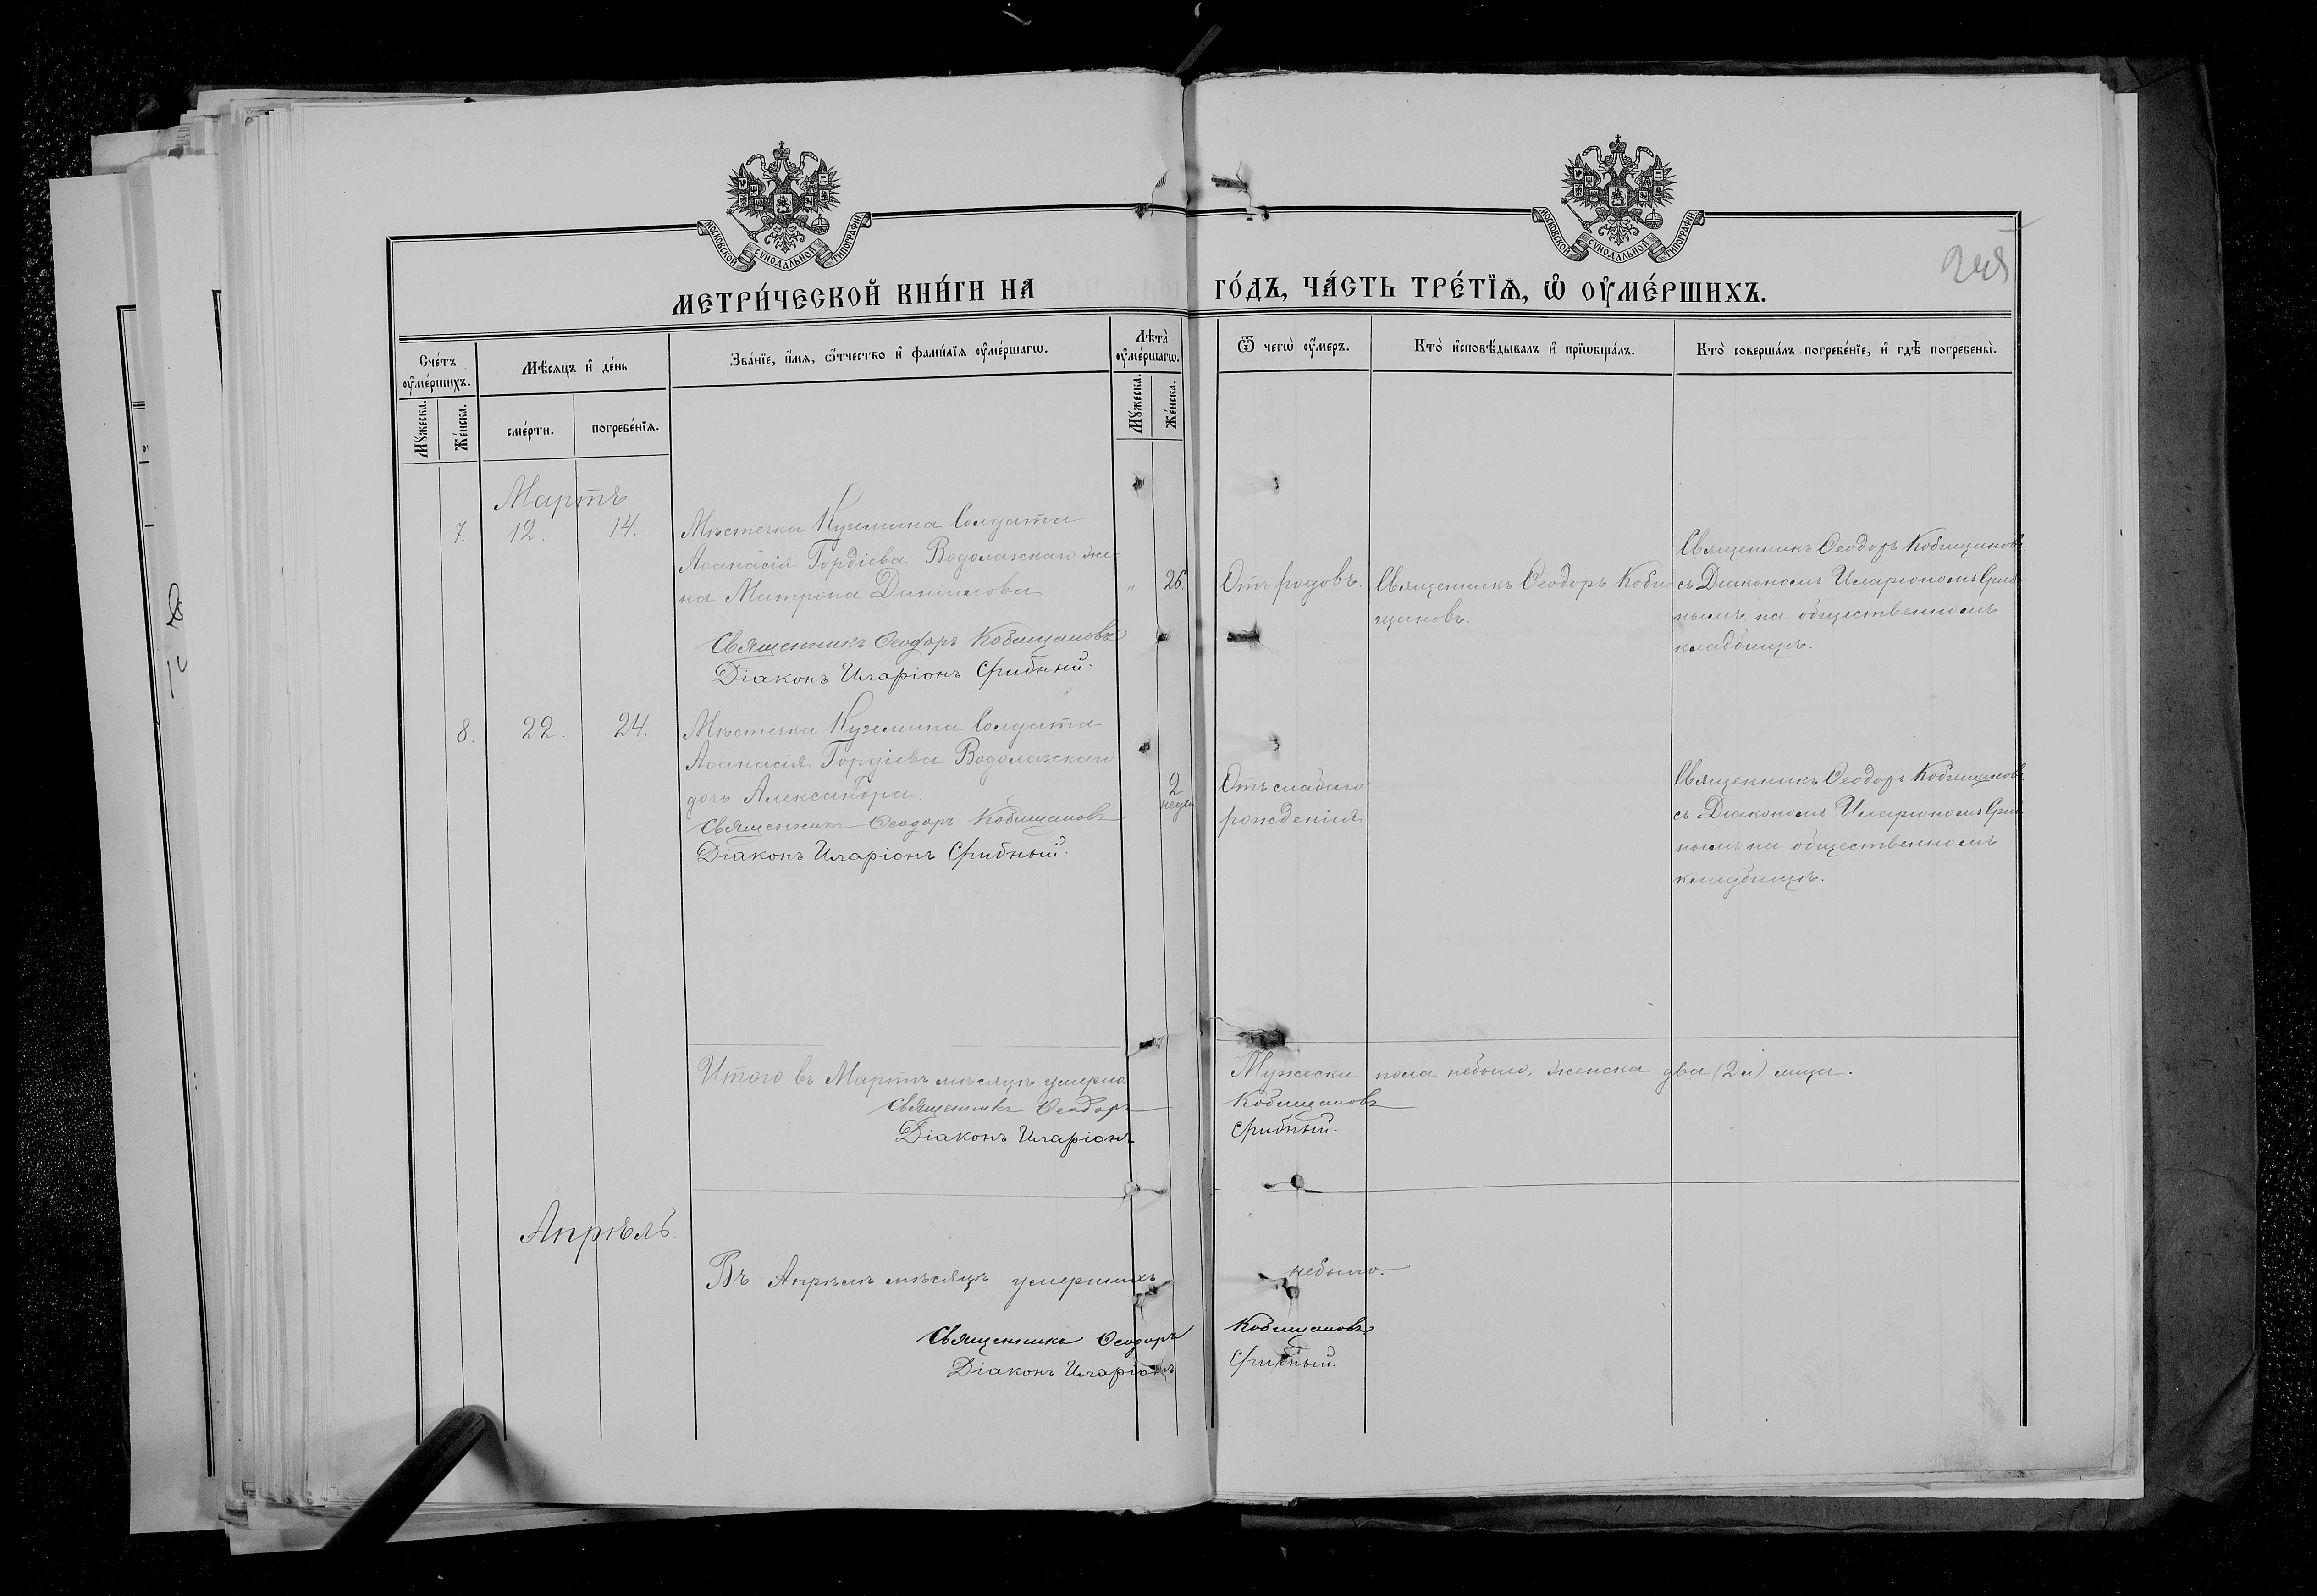 МОСКОВСКОЙ СУНОДАЛЬНОЙ ТИПОГРАФІИ
МОСКОВСКОЙ СУНОДАЛЬНОЙ ТИПОГРАФІИ
МЕТРИ́ЧЕСКОЙ КНИ́ГИ НА
ГО́ДЪ, ЧА́СТЬ ТРЕ́ТЇѦ, Ѡ ОУ҆МЕ́РШИХЪ.
Сче́тъ оу҆ме́ршихъ.
Мѣ́сяцъ и҆ де́нь
Зва́нїе, и҆́мя, ѻ҆́тчество и҆ фами́лїя оу҆ме́ршагѡ.
Лѣта̀ оу҆ме́ршагѡ.
Ѿ чегѡ̀ оу҆́меръ.
Кто̀ и҆сповѣ́дывалъ и҆ прїѡбща́лъ.
Кто̀ соверша́лъ погребе́нїе, и҆ гдѣ̀ погребены̀.
Мꙋ́жеска.
Же́нска.
сме́рти.
погребе́нїя.
Мꙋ́жеска.
Же́нска.
Мартъ
7. 12. 14.
Мѣстечка Куземина Солдата
Аѳанасія Гордіева Водолажскаго же-
на Матрона Даніилова
Священникъ Ѳеодоръ Кобищановъ
Діаконъ Иларіонъ Срибный.
" 26.
Отъ родовъ.
Священникъ Ѳеодоръ Коби-
щановъ.
Священникъ Ѳеодоръ Кобищановъ
съ Діакономъ Иларіономъ Сриб-
нымъ, на общественномъ
кладбищѣ.
8. 22. 24.
Мѣстечка Куземина Солдата
Аѳанасія Гордіева Водолажскаго
дочь Александра
Священникъ Ѳеодоръ Кобищановъ
Діаконъ Иларіонъ Срибный.
2
недѣл
Отъ слабаго
рожденія
Священникъ Ѳеодоръ Кобищановъ
съ Діакономъ Иларіономъ Сриб
нымъ на общественномъ
кладбищѣ.
Итого въ Мартѣ мѣсяцѣ умерло Мужеска пола небыло, женска два (2) лица.
Священникъ Ѳеодоръ Кобищановъ
Діаконъ Иларіонъ Срибный.
Апрѣль.
Въ Апрѣлѣ мѣсяцѣ умершихъ небыло.
Священникъ Ѳеодоръ Кобищановъ
Діаконъ Иларіонъ Срибный.